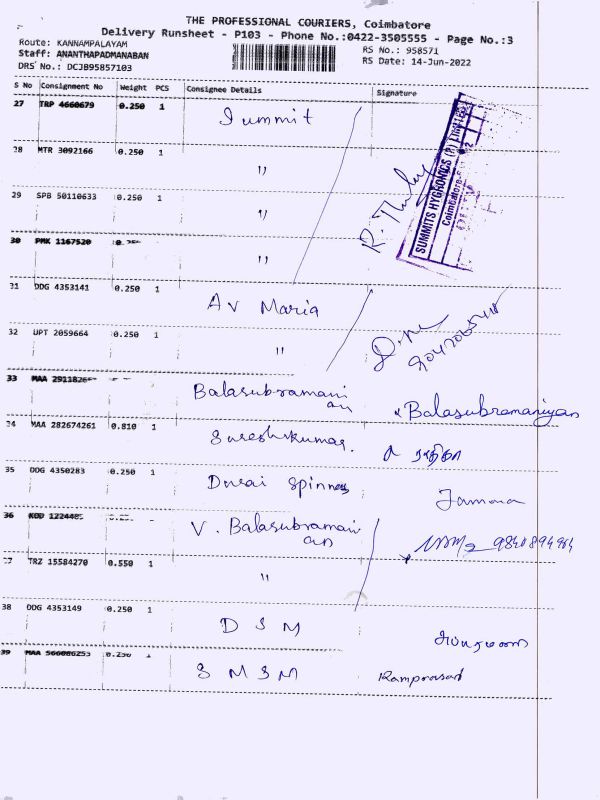 THE PROFESSIONAL COURIERS, Coimbatore
Delivery Runsheet - P103 - Phone No.:0422-3505555 - Page No.:3
Route: KANNAMPALAYAM
RS No.: 958571
Staff: ANANTHAPADMANABAN
RS Date: 14-Jun-2022
DRS No.: DCJB95857103
S No Consignment No Weight PCS Consignee Details Signature
27 TRP 4660679 0.250 1 Summit
SUMMITS HYGRONICS (P)
Coimbatore
28 MTR 3092166 0.250 1 "
29 SPB 50110633 0.250 1 "
30 PMK 1167520 "
31 DDG 4353141 0.250 1 AV Maria
32 UPT 2059664 0.250 1 "
33 MAA Balasubramanian Balasubramaniyan
34 MAA 282674261 0.810 1 Sureshkumar.
35 DDG 4350283 0.250 1 Durai Spinners
36 V. Balasubramanian
37 TRZ 15584270 0.550 1 "
38 DDG 4353149 0.250 1 D S M
39 MAA 566086253 0.250 1 S M S M Ramprasad